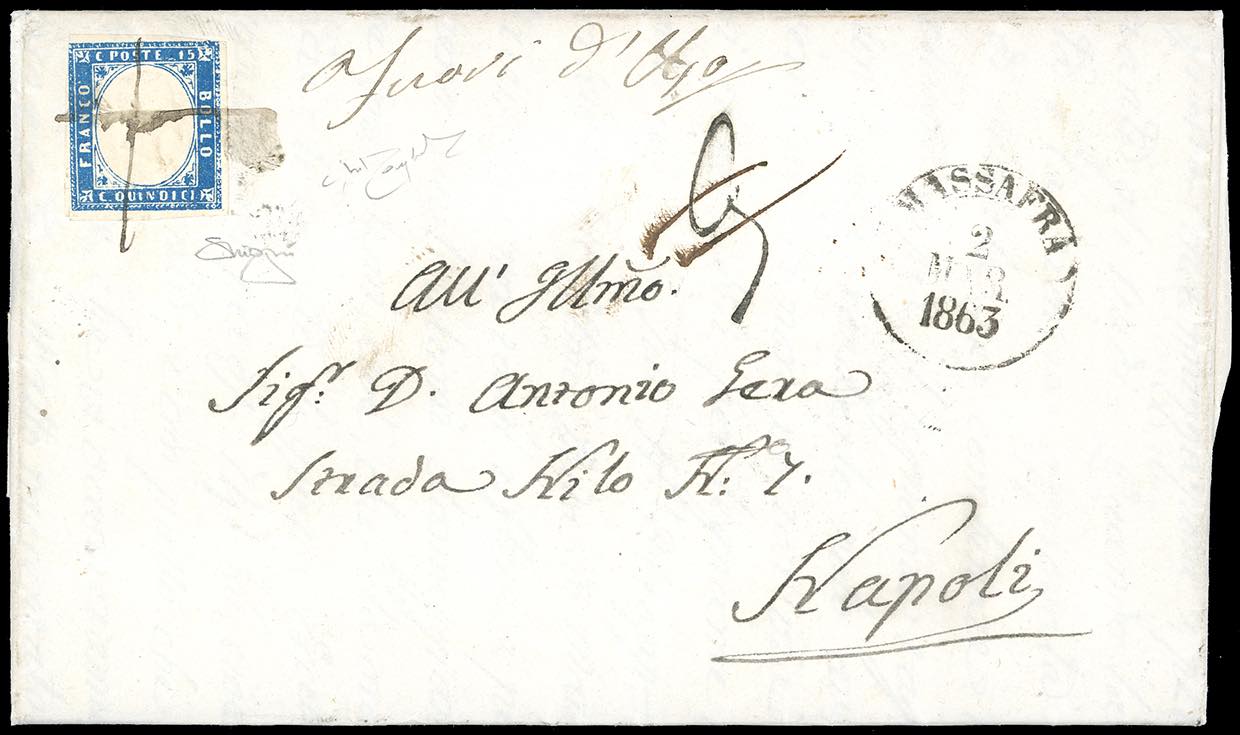 C POSTE 15
FRANCO
BOLLO
C. QUINDICI
Fuori d'Uso
MASSAFRA
2
MAR
1863
All' Illmo.
Sigr. D. Antonio Gera
Strada Nilo N: 7.
Napoli